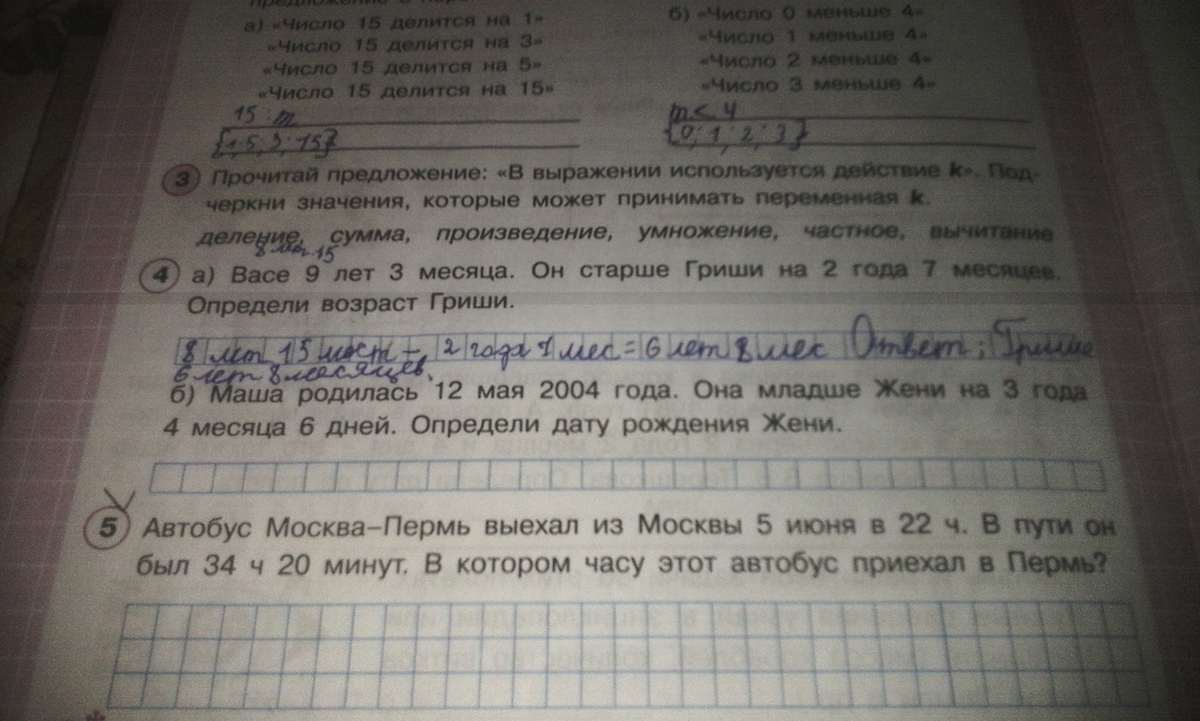 предложение
а) «Число 15 делится на 1»
«Число 15 делится на 3»
«Число 15 делится на 5»
«Число 15 делится на 15»
15 : m
{1; 5; 3; 15}
б) «Число 0 меньше 4»
«Число 1 меньше 4»
«Число 2 меньше 4»
«Число 3 меньше 4»
m < 4
{0; 1; 2; 3}
3 Прочитай предложение: «В выражении используется действие k». Под-
черкни значения, которые может принимать переменная k.
деление, сумма, произведение, умножение, частное, вычитание
8 15
4 а) Васе 9 лет 3 месяца. Он старше Гриши на 2 года 7 месяцев.
Определи возраст Гриши.
8 лет 15 мест – 2 года 7 мес = 6 лет 8 мес Ответ: Грише
6 лет 8 месяцев.
б) Маша родилась 12 мая 2004 года. Она младше Жени на 3 года
4 месяца 6 дней. Определи дату рождения Жени.
5 Автобус Москва–Пермь выехал из Москвы 5 июня в 22 ч. В пути он
был 34 ч 20 минут. В котором часу этот автобус приехал в Пермь?